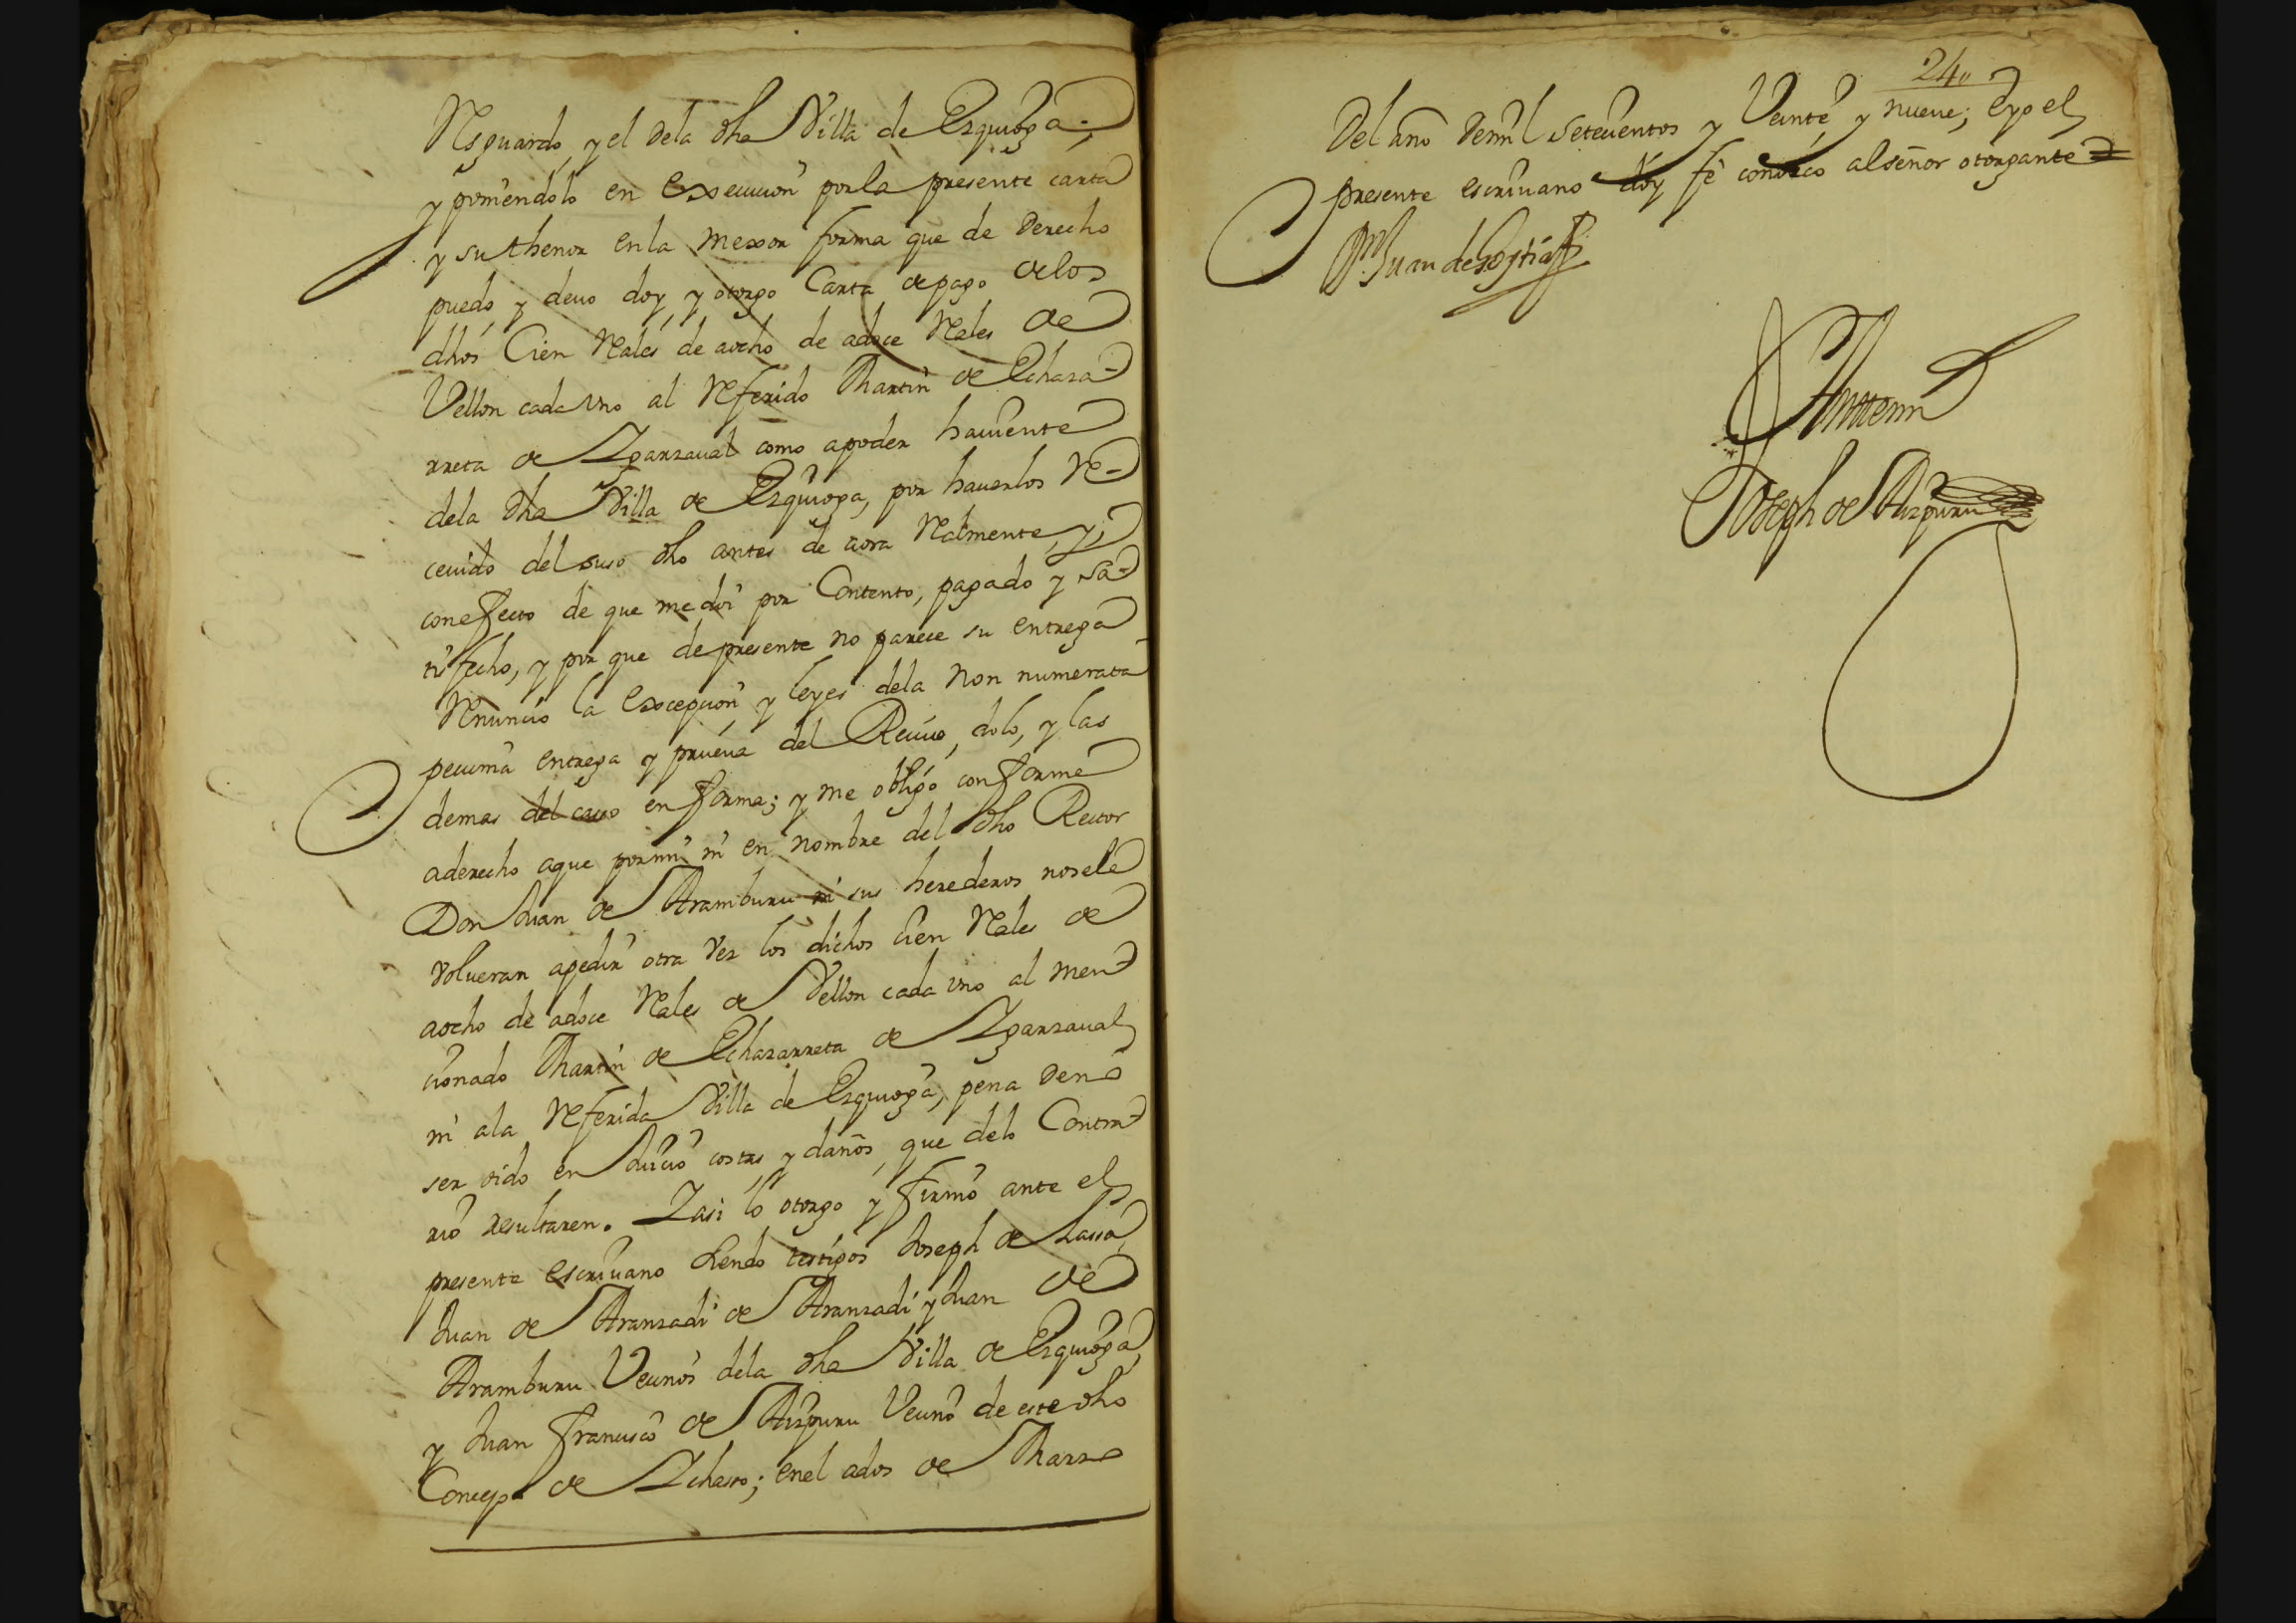 Resguardo, y el dela dha Villa de Ezquioga;
y poniendolo en Execucion por la presente carta
y su thenor en la mexor forma que de derecho
puedo y devo doy y otorgo Carta de pago de los
dhos Cien Rales de aocho de adoce Rales de
Vellon cada uno al Referido Martin de Echaza-
rreta de Ygarzaval como apoder haviente
dela dha Villa de Ezquioga, por haverlos Re-
cevido del suso dho antes de aora Ralmente, y
con effecto de que me doi por Contento, pagado y sa-
tisfecho, y por que de presente no parece su entrega
Renuncio la Excepcion y leyes dela non numerata
pecunia entrega y prueva del Recivo, dolo, y las
demas del caso en forma; y me obligo conforme
aderecho aque por mi ni en nombre del dho Rector
Don Juan de Aramburu ni sus herederos nosele
volveran apedir otra vez los dichos cien Rales de
aocho de adoce Rales de Vellon cada uno al men-
cionado Martin de Echazarreta de Ygarzaval
ni ala Referida Villa de Ezquioga, pena de no
ser oido en Juicio costas y daños, que delo Contra-
rio resultaren. Y asi lo otorgo y firmo ante el
presente escrivano siendo testigos Joseph de Lassa,
Juan de Aranzadi de Aranzadi y Juan de
Aramburu Vecinos dela dha Villa de Ezquioga,
y Juan Francisco de Aizpuru Vecino de este dho
Concejo de Ychaso; en el ados de Marzo
24
Del año de mil setecientos y Veinte y nueve; E yo el
presente escrivano doy fe conozco al señor otorgante
Juan de
Antemi
Joseph de Aizpuru